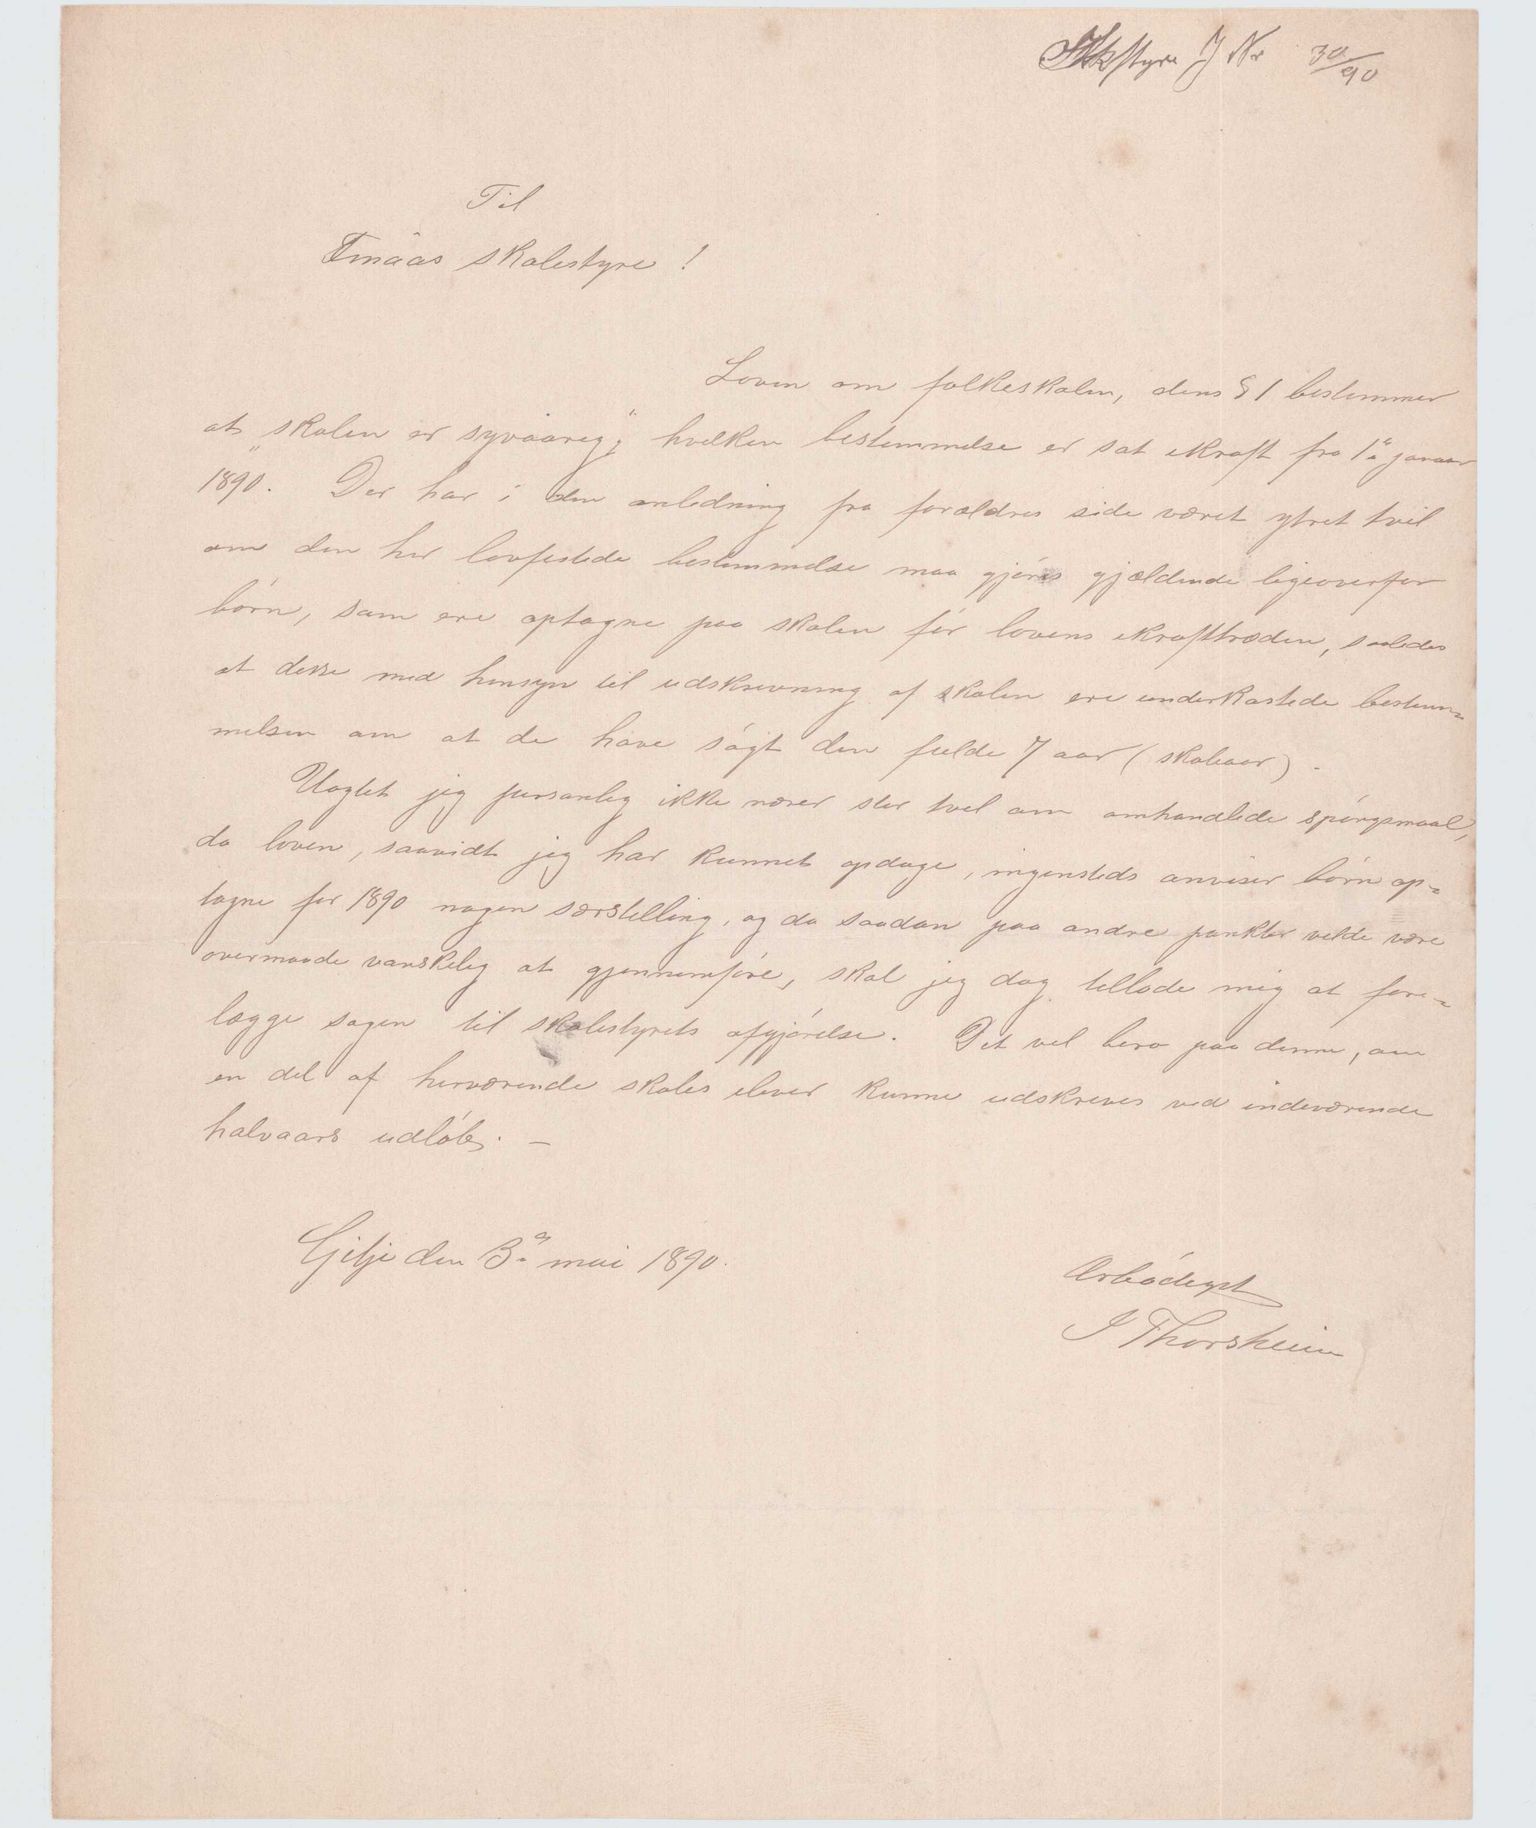 Skstyre J Nr 30/90
Til
Finaas skolestyre !
Loven om folkeskolen, dens § 1 bestemmer
at „skolen er syvaarig;" hvilken bestemmelse er sat ikraft fra 1ª januar
1890. Der har i den anledning fra forældres side været ytret tvil
om den her lovfestede bestemmelse maa gjøres gjældende ligeoverfor
børn, som ere optagne paa skolen før lovens ikrafttræden, saaledes
at disse med hensyn til udskrivning af skolen ere underkastede bestem-
melsen om at de have søgt den fulde 7 aar (skoleaar).
Uagtet jeg personlig ikke nærer stor tvil om omhandlede spørgsmaal,
da loven, saavidt jeg har kunnet opdage, ingensteds anviser børn op-
tagne før 1890 nogen særstilling, og da saadan paa andre punkter vilde være
overmaade vanskelig at gjennemføre, skal jeg dog tillade mig at fore-
lægge sagen til skolestyrets afgjørelse. Det vil bero paa denne, om
en del af herværende skoles elever kunne udskrives ved indeværende
halvaars udløb. —
Gilje den 3ª mai 1890.
Ærbødigst
I Thorsheim